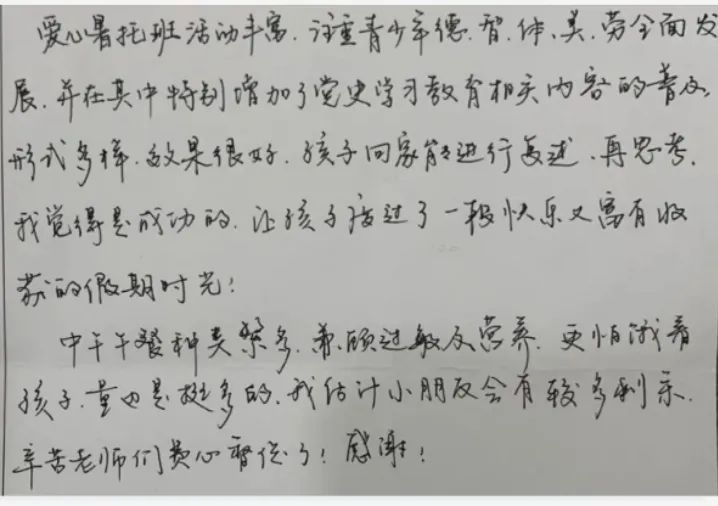 爱心暑托班活动丰富.注重青少年德.智.体.美.劳全面发
展.并在其中特别增加了党史学习教育相关内容的普及,
形式多样.效果很好.孩子回家能进行复述.再思考.
我觉得是成功的.让孩子度过了一段快乐又富有收
获的假期时光!
中午午餐种类繁多.兼顾过敏及营养.更怕饿着
孩子.量也是挺多的.我估计小朋友会有较多剩余.
辛苦老师们费心督促了!感谢!